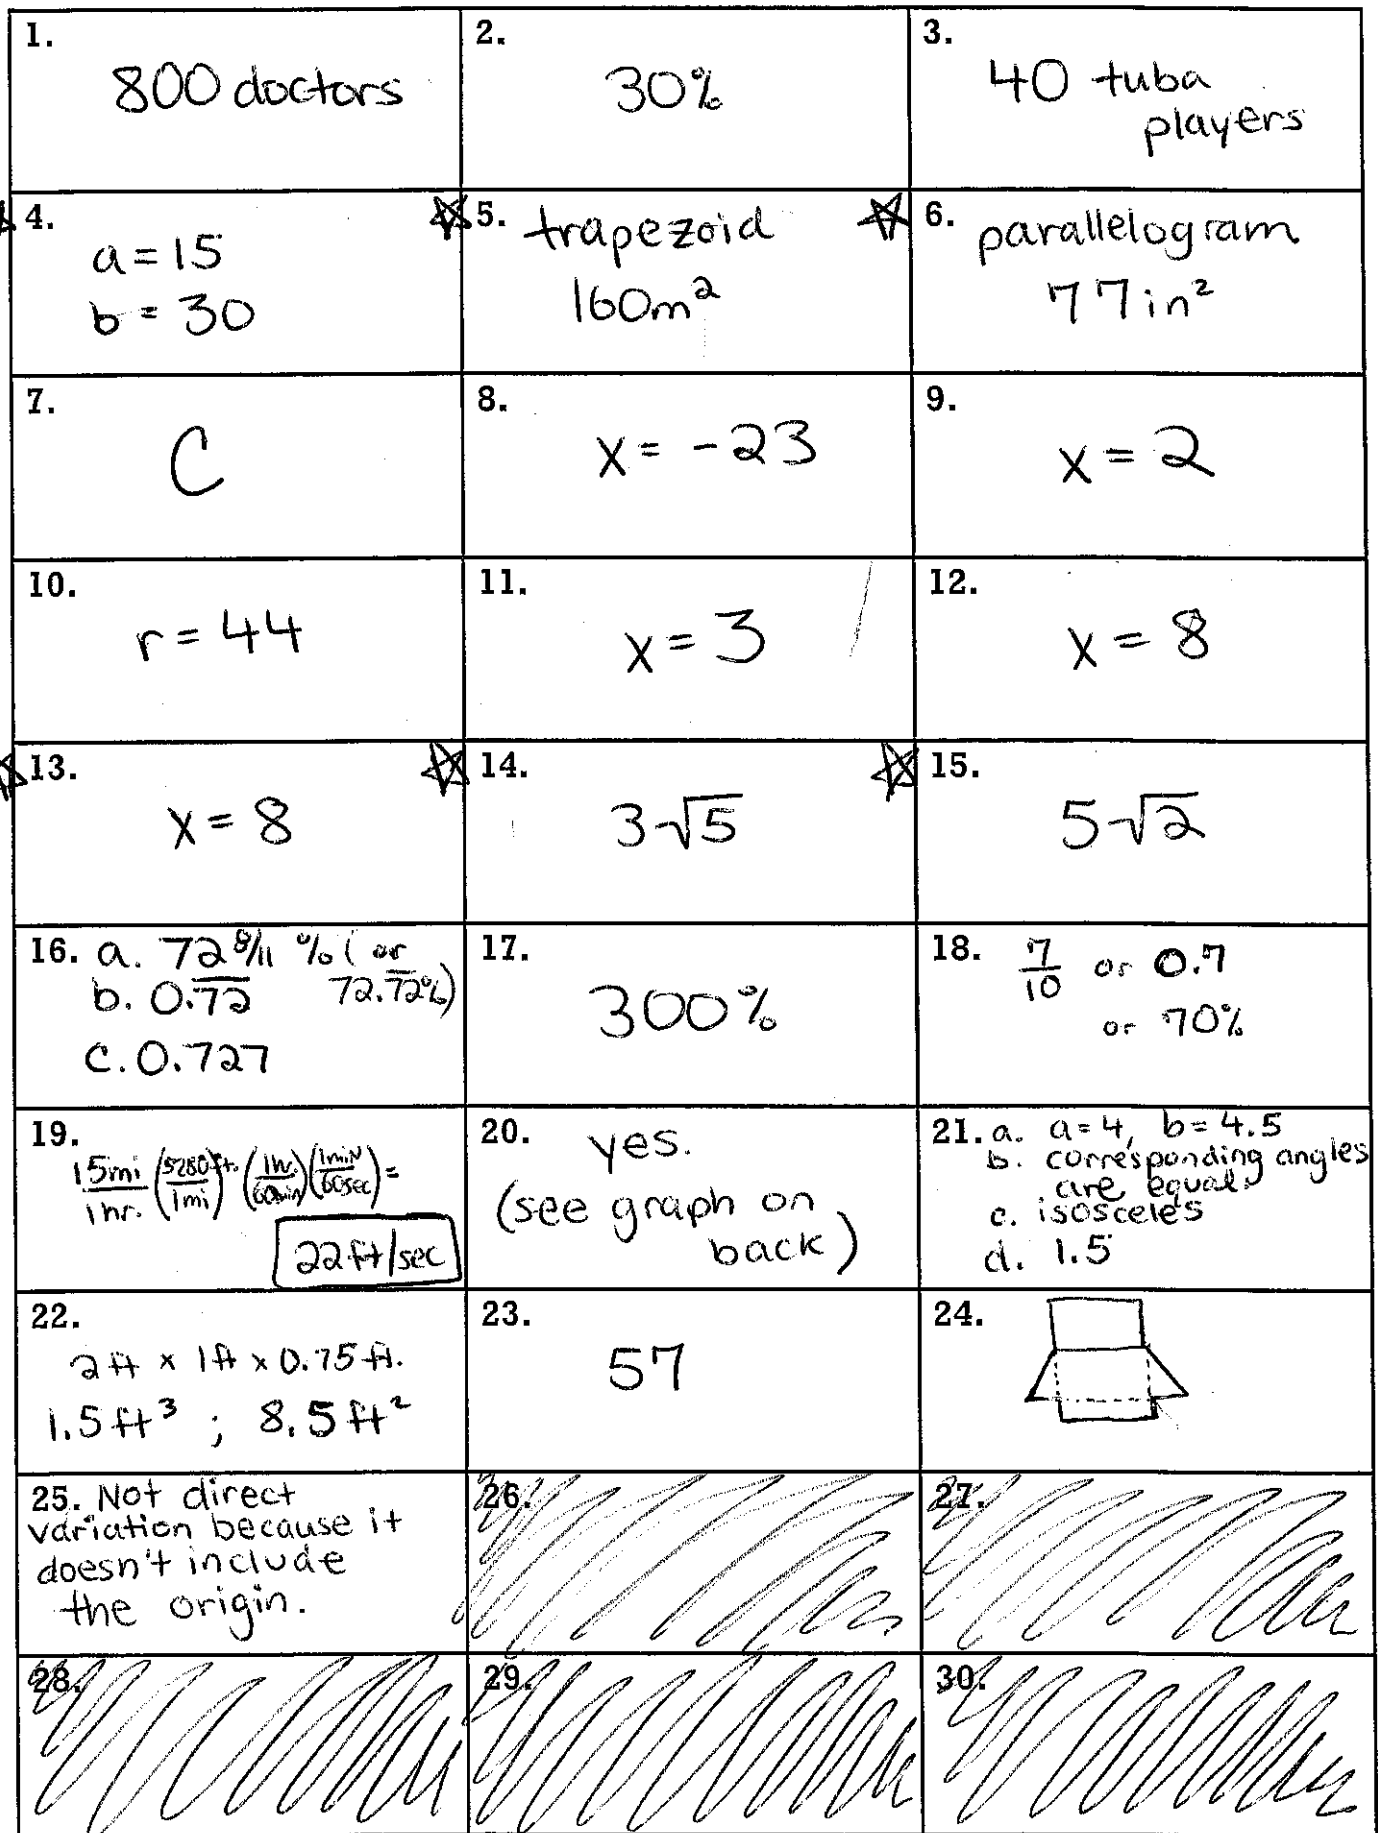 1.
800 doctors
2.
30%
3.
40 tuba
players
4.
a = 15
b = 30
5. trapezoid
160m²
6. parallelogram
77in²
7.
C
8.
x = -23
9.
x = 2
10.
r = 44
11.
x = 3
12.
x = 8
13.
x = 8
14.
3√5
15.
5√2
16. a. 72 8/11 % (or
b. 0.7̅2̅ 72.7̅2̅%)
c. 0.727
17.
300%
18. 7/10 or 0.7
or 70%
19.
15mi/1hr. (5280ft./1mi) (1hr./60min)(1min/60sec) =
22ft/sec
20. yes.
(see graph on
back)
21. a. a=4, b=4.5
b. corresponding angles
are equal.
c. isosceles
d. 1.5
22.
2ft x 1ft x 0.75ft.
1.5ft³ ; 8.5ft²
23.
57
24.
25. Not direct
variation because it
doesn't include
the origin.
26.
27.
28.
29.
30.